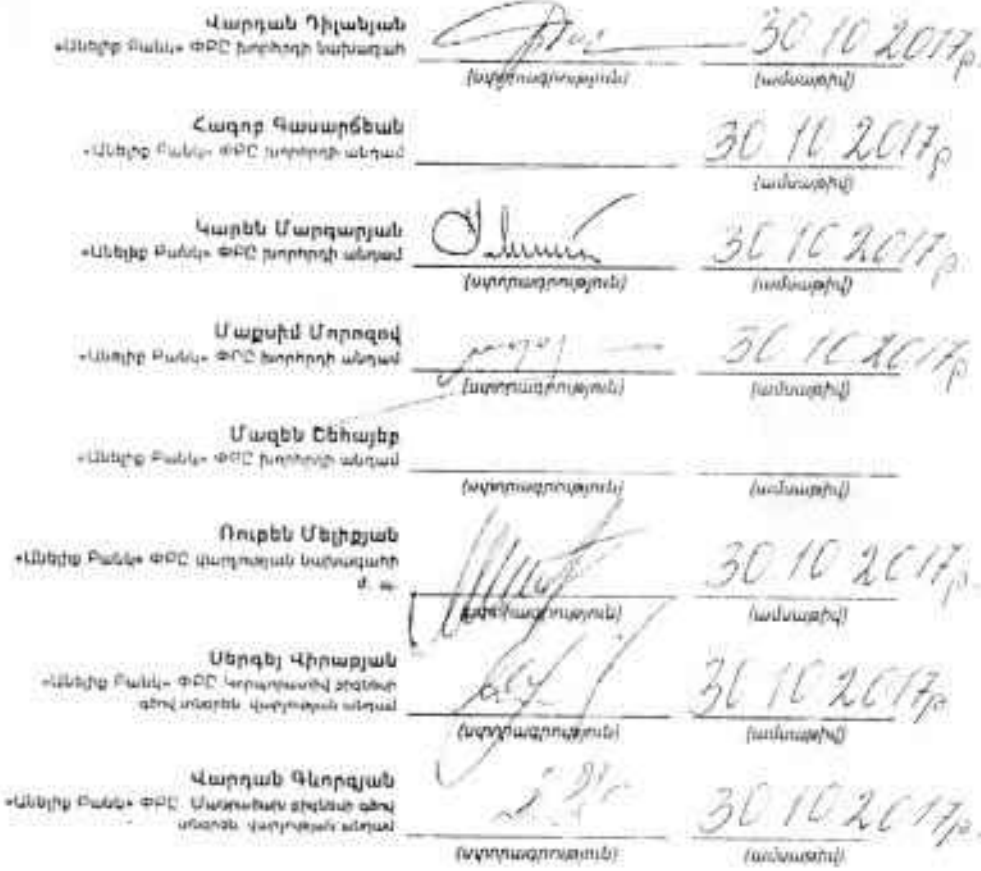 Վարդան Դիլանյան
«Անելիք Բանկ» ՓԲԸ խորհրդի նախագահ
30 10 2017թ.
(ստորագրություն) (ամսաթիվ)
Հագոբ Գասարճեան
«Անելիք Բանկ» ՓԲԸ խորհրդի անդամ
30 10 2017թ
(ամսաթիվ)
Կարեն Մարգարյան
«Անելիք Բանկ» ՓԲԸ խորհրդի անդամ
30 10 2017թ.
(ստորագրություն) (ամսաթիվ)
Մաքսիմ Մորոզով
«Անելիք Բանկ» ՓԲԸ խորհրդի անդամ
30 10 2017թ
(ստորագրություն) (ամսաթիվ)
Մազեն Շեհայեբ
«Անելիք Բանկ» ՓԲԸ խորհրդի անդամ
(ստորագրություն) (ամսաթիվ)
Ռուբեն Մելիքյան
«Անելիք Բանկ» ՓԲԸ վարչության նախագահի
մ. պ.
30 10 2017թ.
(ստորագրություն) (ամսաթիվ)
Սերգեյ Վիրաբյան
«Անելիք Բանկ» ՓԲԸ Կորպորատիվ բիզնեսի
գծով տնօրեն, վարչության անդամ
30 10 2017թ
(ստորագրություն) (ամսաթիվ)
Վարդան Գևորգյան
«Անելիք Բանկ» ՓԲԸ Մանրածախ բիզնեսի գծով
տնօրեն, վարչության անդամ
30 10 2017թ.
(ստորագրություն) (ամսաթիվ)